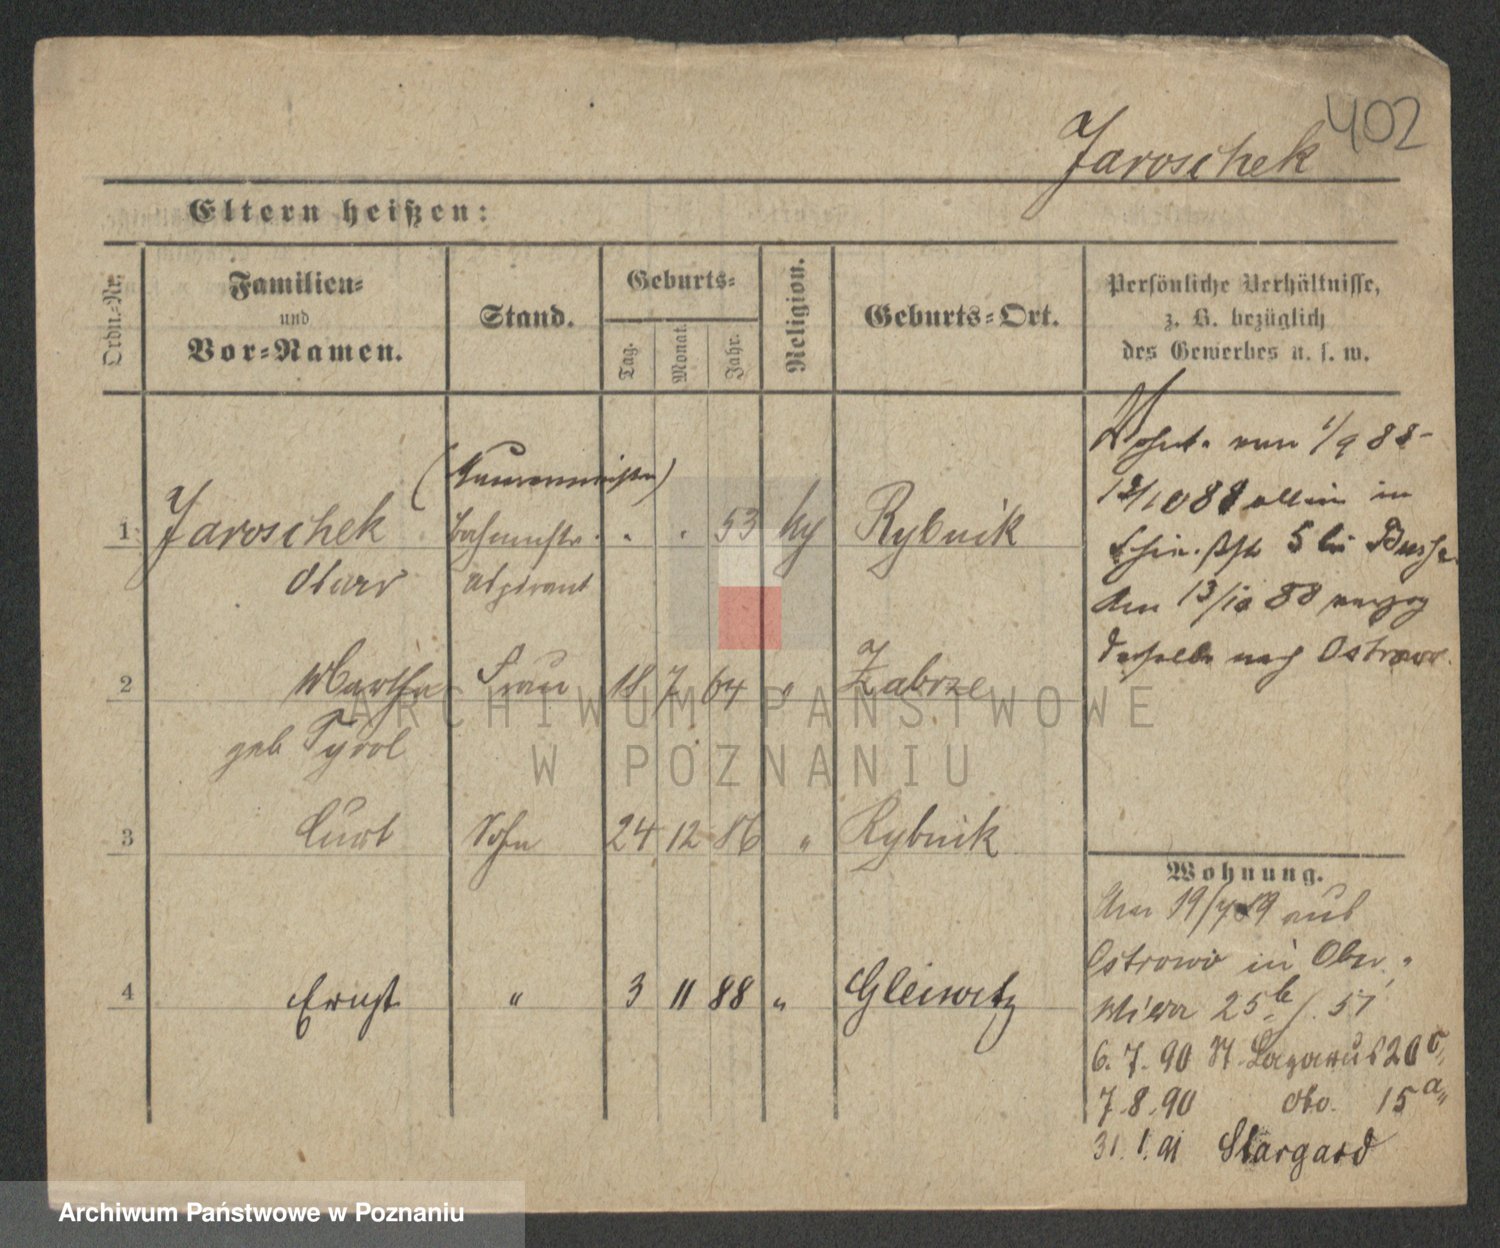 402
Jaroschek
Eltern heißen:
Ordn.-Nr.
Familien-
und
Vor-Namen.
Stand.
Geburts-
Tag.
Monat.
Jahr.
Religion.
Geburts-Ort.
Persönliche Verhältnisse,
z. B. bezüglich
des Gewerbes u. s. w.
1 Jaroschek 53 Rybnik
Aspirant
2 Martha Frau 18 7 64 " Zabrze
geb Tyrol
3 Curt Sohn 24 12 86 " Rybnik
4 Ernst " 3 11 88 " Gleiwitz
Wohnt. vom 1/9 88-
12/10 88 allein in
5 bei
Am 13/10 88 verzog
derselbe nach Ostrowo.
Wohnung.
Am 19/7 89 aus
Ostrowo in Ober-
Wilda 25b/. 51
6. 7. 90 St. Lazarus 20c,,
7. 8. 90 dto. 15a,,
31. 1. 91 Stargard
ARCHIWUM PAŃSTWOWE
W POZNANIU
Archiwum Państwowe w Poznaniu